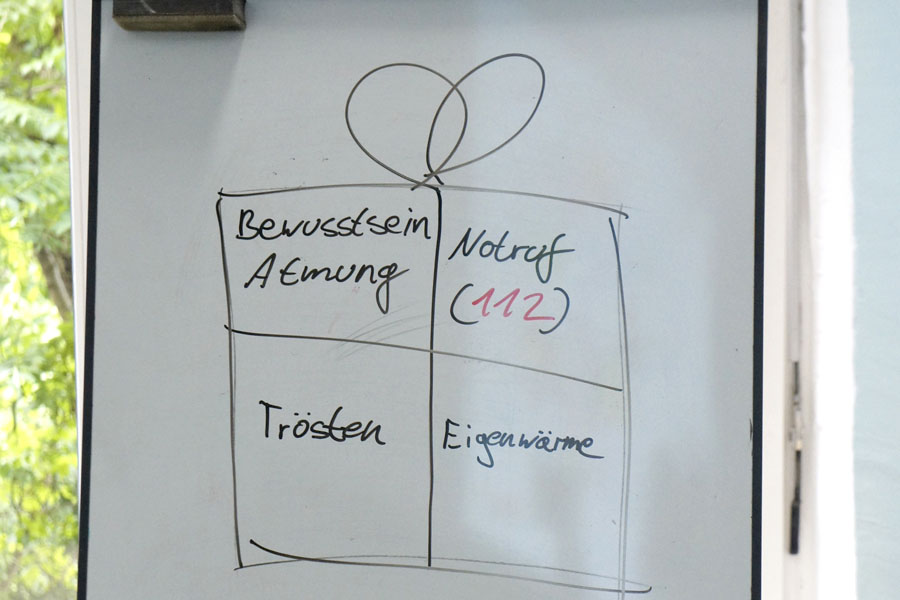 Bewusstsein
Atmung
Notruf
(112)
Trösten
Eigenwärme